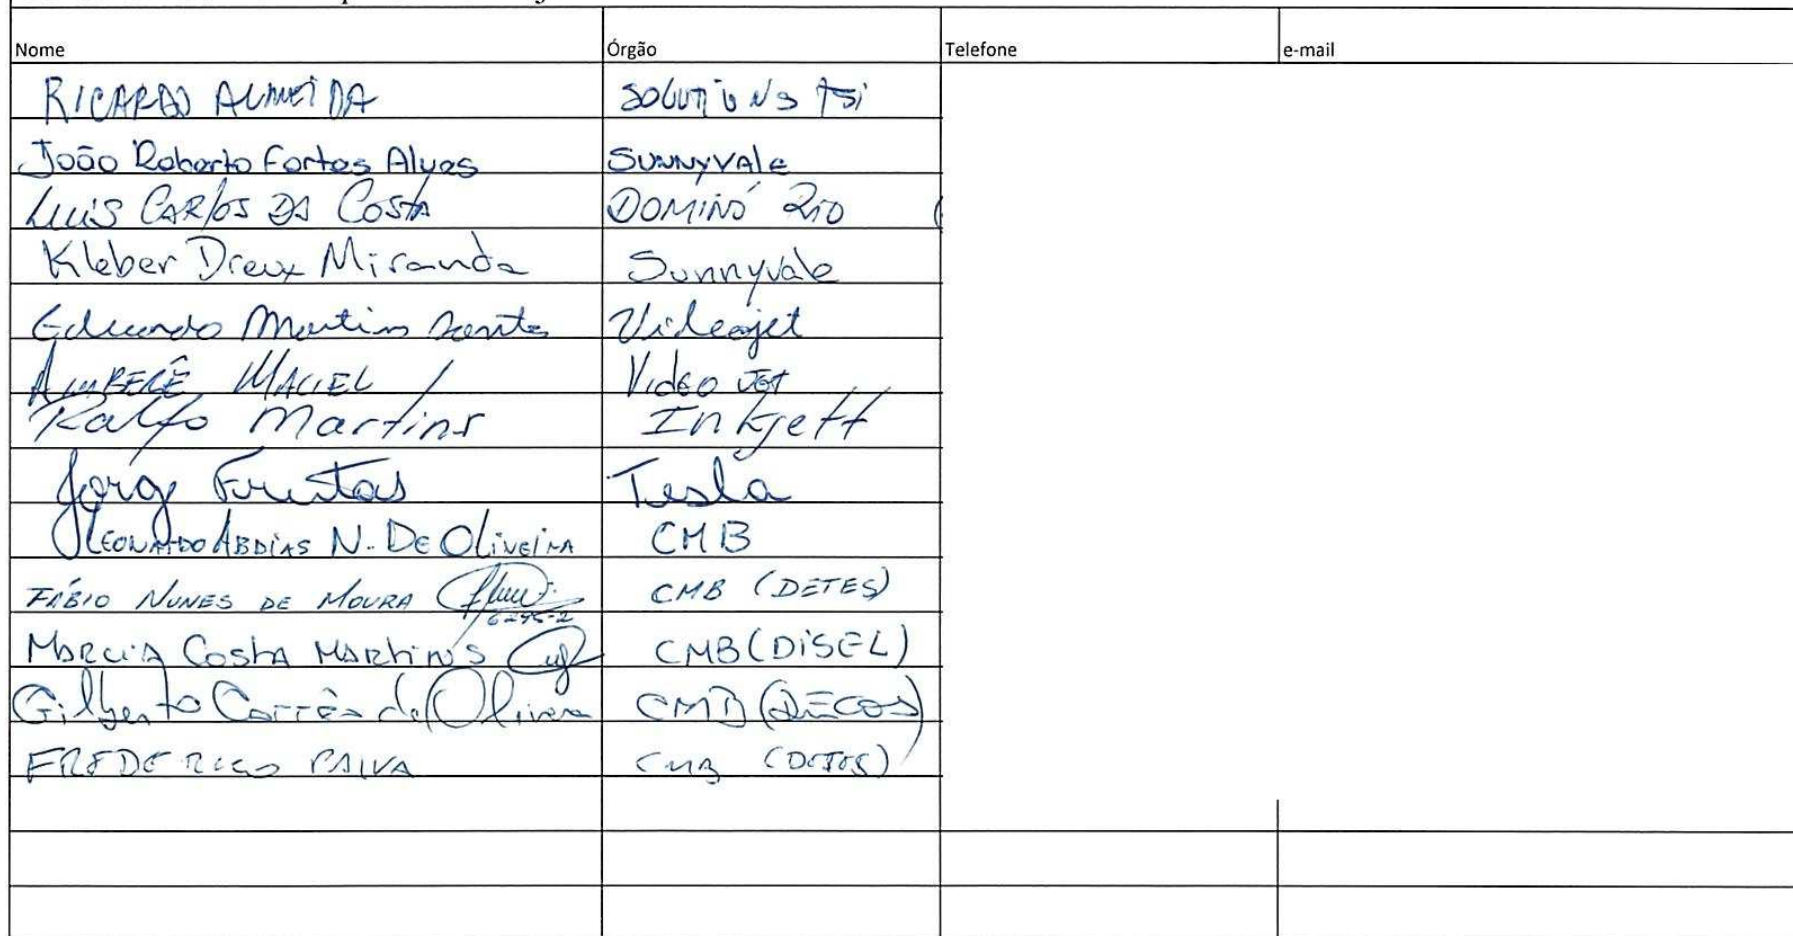 Nome Órgão Telefone e-mail
RICARDO ALMEIDA SOLUTIONS
João Roberto Fortes Alves SUNNYVALE
LUIS CARLOS DA COSTA DOMINÓ RIO
Kleber Dreux Miranda Sunnyvale
Eduardo Martins Santos Videojet
AIMBERÊ MACIEL VIDEO JET
Ralfo Martins Inkjett
Jorge Freitas Tesla
LEONARDO ABDIAS N. DE OLIVEIRA CMB
FÁBIO NUNES DE MOURA CMB (DETES)
6295-2
MARCIA COSTA MARTINS CMB (DISEL)
Gilberto Corrêa de Oliveira CMB (DECOS)
FREDERICO PAIVA CMB (DETES)